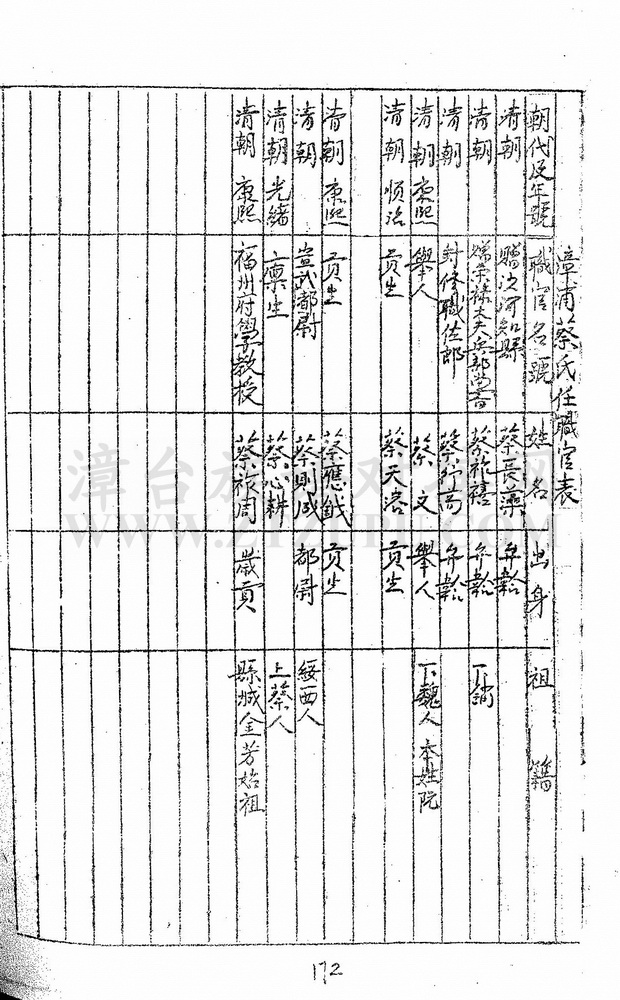 漳浦蔡氏任職官表
朝代及年號 職官名號 姓名 出身 祖籍
清朝 贈沙河知縣 蔡長藻 弁韜
清朝 贈榮祿大夫兵部尚書 蔡祚禧 弁韜 下銷
清朝 封修職佐郎 蔡行高 弁韜
清朝康熙 舉人 蔡文 舉人 下魏人 本姓阮
清朝順治 貢生 蔡天溶 貢生
清朝康熙 貢生 蔡應鉞 貢生
清朝 宣武都尉 蔡則成 都尉 綏西人
清朝光緒 廩生 蔡心耕 上蔡人
清朝康熙 福州府學教授 蔡祚周 歲貢 縣城金芳始祖
漳台族譜对接网
WWW.ZTZUPU.COM
172